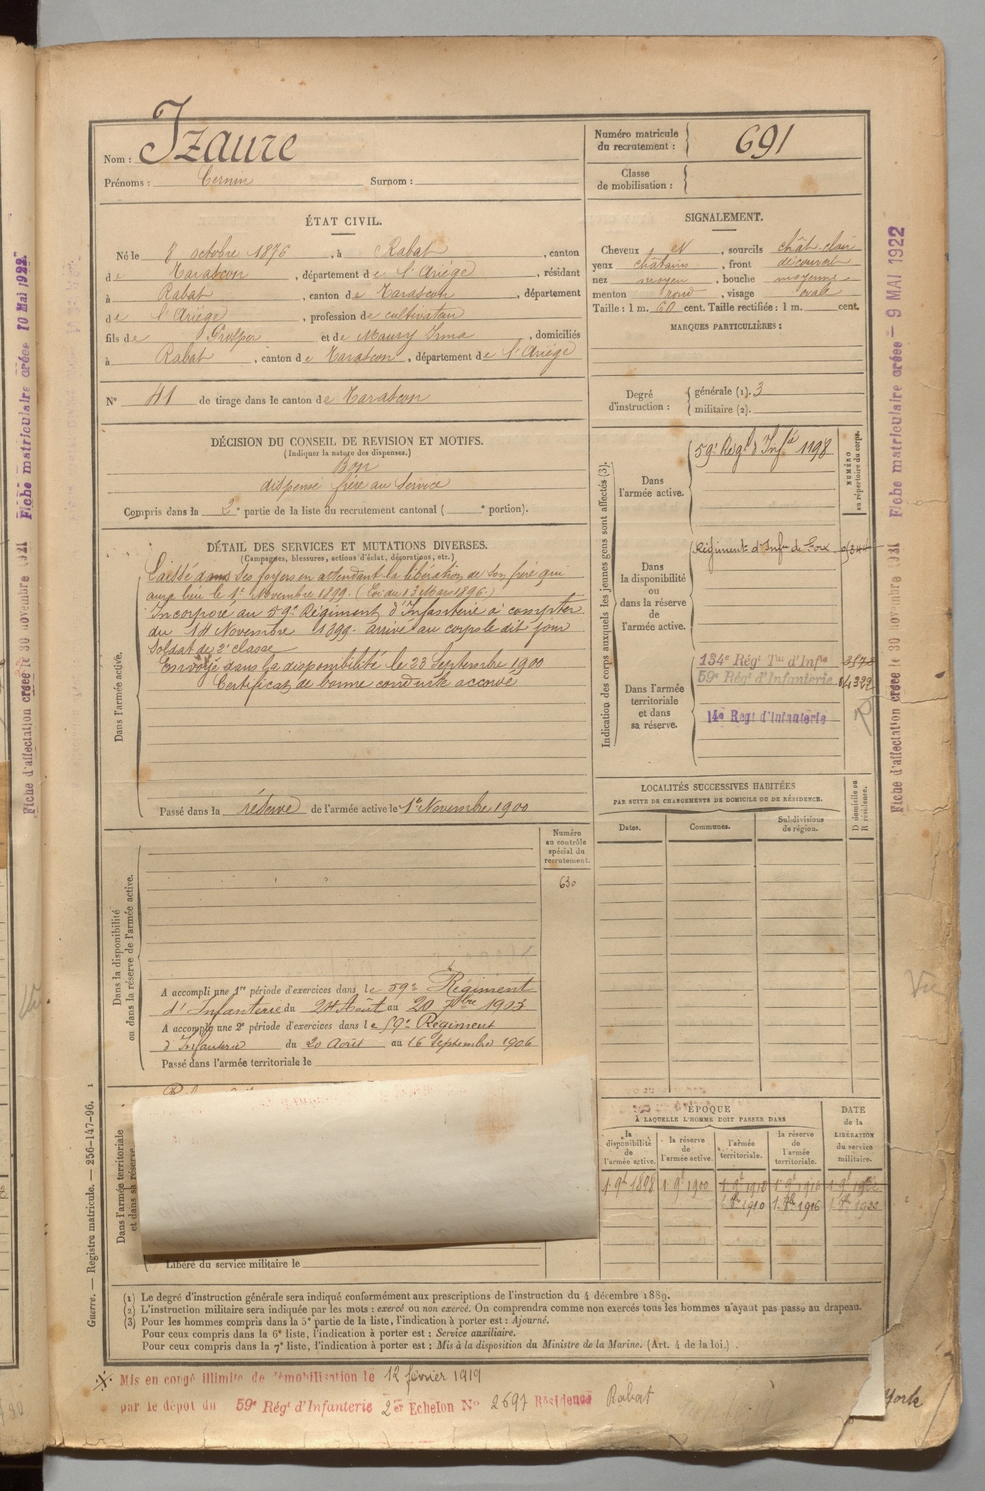 Nom : Izaure
Prénoms : Cernin Surnom :
Numéro matricule du recrutement : 691
Classe de mobilisation :
ÉTAT CIVIL.
Né le 8 octobre 1876, à Rabat, canton
de Tarascon, département de l'Ariège, résidant
à Rabat, canton de Tarascon, département
de l'Ariège, profession de cultivateur
fils de et de Maury Irma, domiciliés
à Rabat, canton de Tarascon, département de l'Ariège
N° 41 de tirage dans le canton de Tarascon
SIGNALEMENT.
Cheveux et, sourcils chât. clair
yeux châtains, front découvert
nez moyen, bouche moyenne
menton rond, visage ovale
Taille : 1 m. 60 cent. Taille rectifiée : 1 m. cent.
MARQUES PARTICULIÈRES :
Degré d'instruction : générale (1). 3
militaire (2).
DÉCISION DU CONSEIL DE REVISION ET MOTIFS.
(Indiquer la nature des dispenses.)
Bon
dispensé frère au service
Compris dans la 2e partie de la liste du recrutement cantonal ( e portion).
DÉTAIL DES SERVICES ET MUTATIONS DIVERSES.
(Campagnes, blessures, actions d'éclat, décorations, etc.)
Dans l'armée active.
Laissé dans ses foyers en attendant la libération de son frère qui
aura lieu le 1er Novembre 1899. (Loi du 13 Mars 1896.)
Incorporé au 59e Régiment d'Infanterie à compter
du 14 Novembre 1899. arrivé au corps le dit jour
Soldat de 2e classe
Envoyé dans la disponibilité le 23 Septembre 1900
Certificat de bonne conduite accordé
Passé dans la réserve de l'armée active le 1er Novembre 1900
Indication des corps auxquels les jeunes gens sont affectés (3).
NUMÉRO au répertoire du corps.
Dans l'armée active.
59e Régt d'Infie 1198
Dans la disponibilité ou dans la réserve de l'armée active.
Régiment d'Infie de Foix
Dans l'armée territoriale et dans sa réserve.
134e Régt Tal d'Infie
59e Régt d'Infanterie
14e Regt d'Infanterie
LOCALITÉS SUCCESSIVES HABITÉES
PAR SUITE DE CHANGEMENTS DE DOMICILE OU DE RÉSIDENCE.
Dates. Communes. Subdivisions de région. D domicile ou R résidence.
Dans la disponibilité ou dans la réserve de l'armée active.
Numéro au contrôle spécial du recrutement.
630
A accompli une 1re période d'exercices dans le 59e Régiment
d'Infanterie du 24 Août au 20 7bre 1903
A accompli une 2e période d'exercices dans le 59e Régiment
d'Infanterie du 20 Août au 16 Septembre 1906
Passé dans l'armée territoriale le
Dans l'armée territoriale et dans sa réserve.
Libéré du service militaire le
ÉPOQUE
À LAQUELLE L'HOMME DOIT PASSER DANS
DATE de la LIBÉRATION du service militaire.
la disponibilité de l'armée active. la réserve de l'armée active. l'armée territoriale. la réserve de l'armée territoriale.
1. 9e 1898 1. 9e 1900 1. 9e 1910 1. 9e 1916 1. 9e 1922
1. 8e 1910 1. 8e 1916 1. 8e 1922
(1) Le degré d'instruction générale sera indiqué conformément aux prescriptions de l'instruction du 4 décembre 1889.
(2) L'instruction militaire sera indiquée par les mots : exercé ou non exercé. On comprendra comme non exercés tous les hommes n'ayant pas passé au drapeau.
(3) Pour les hommes compris dans la 5e partie de la liste, l'indication à porter est : Ajourné.
Pour ceux compris dans la 6e liste, l'indication à porter est : Service auxiliaire.
Pour ceux compris dans la 7e liste, l'indication à porter est : Mis à la disposition du Ministre de la Marine. (Art. 4 de la loi.)
Mis en congé illimité de démobilisation le 12 février 1919
par le dépôt du 59e Régt d'Infanterie 2er Echelon No 2697 Résidence Rabat
York
Guerre. — Registre matricule. — 256-147-96.
Fiche d'affectation créée le 30 novembre 1921 Fiche matriculaire créée 10 Mai 1922.
Fiche d'affectation créée le 30 novembre 1921 Fiche matriculaire créée – 9 MAI 1922